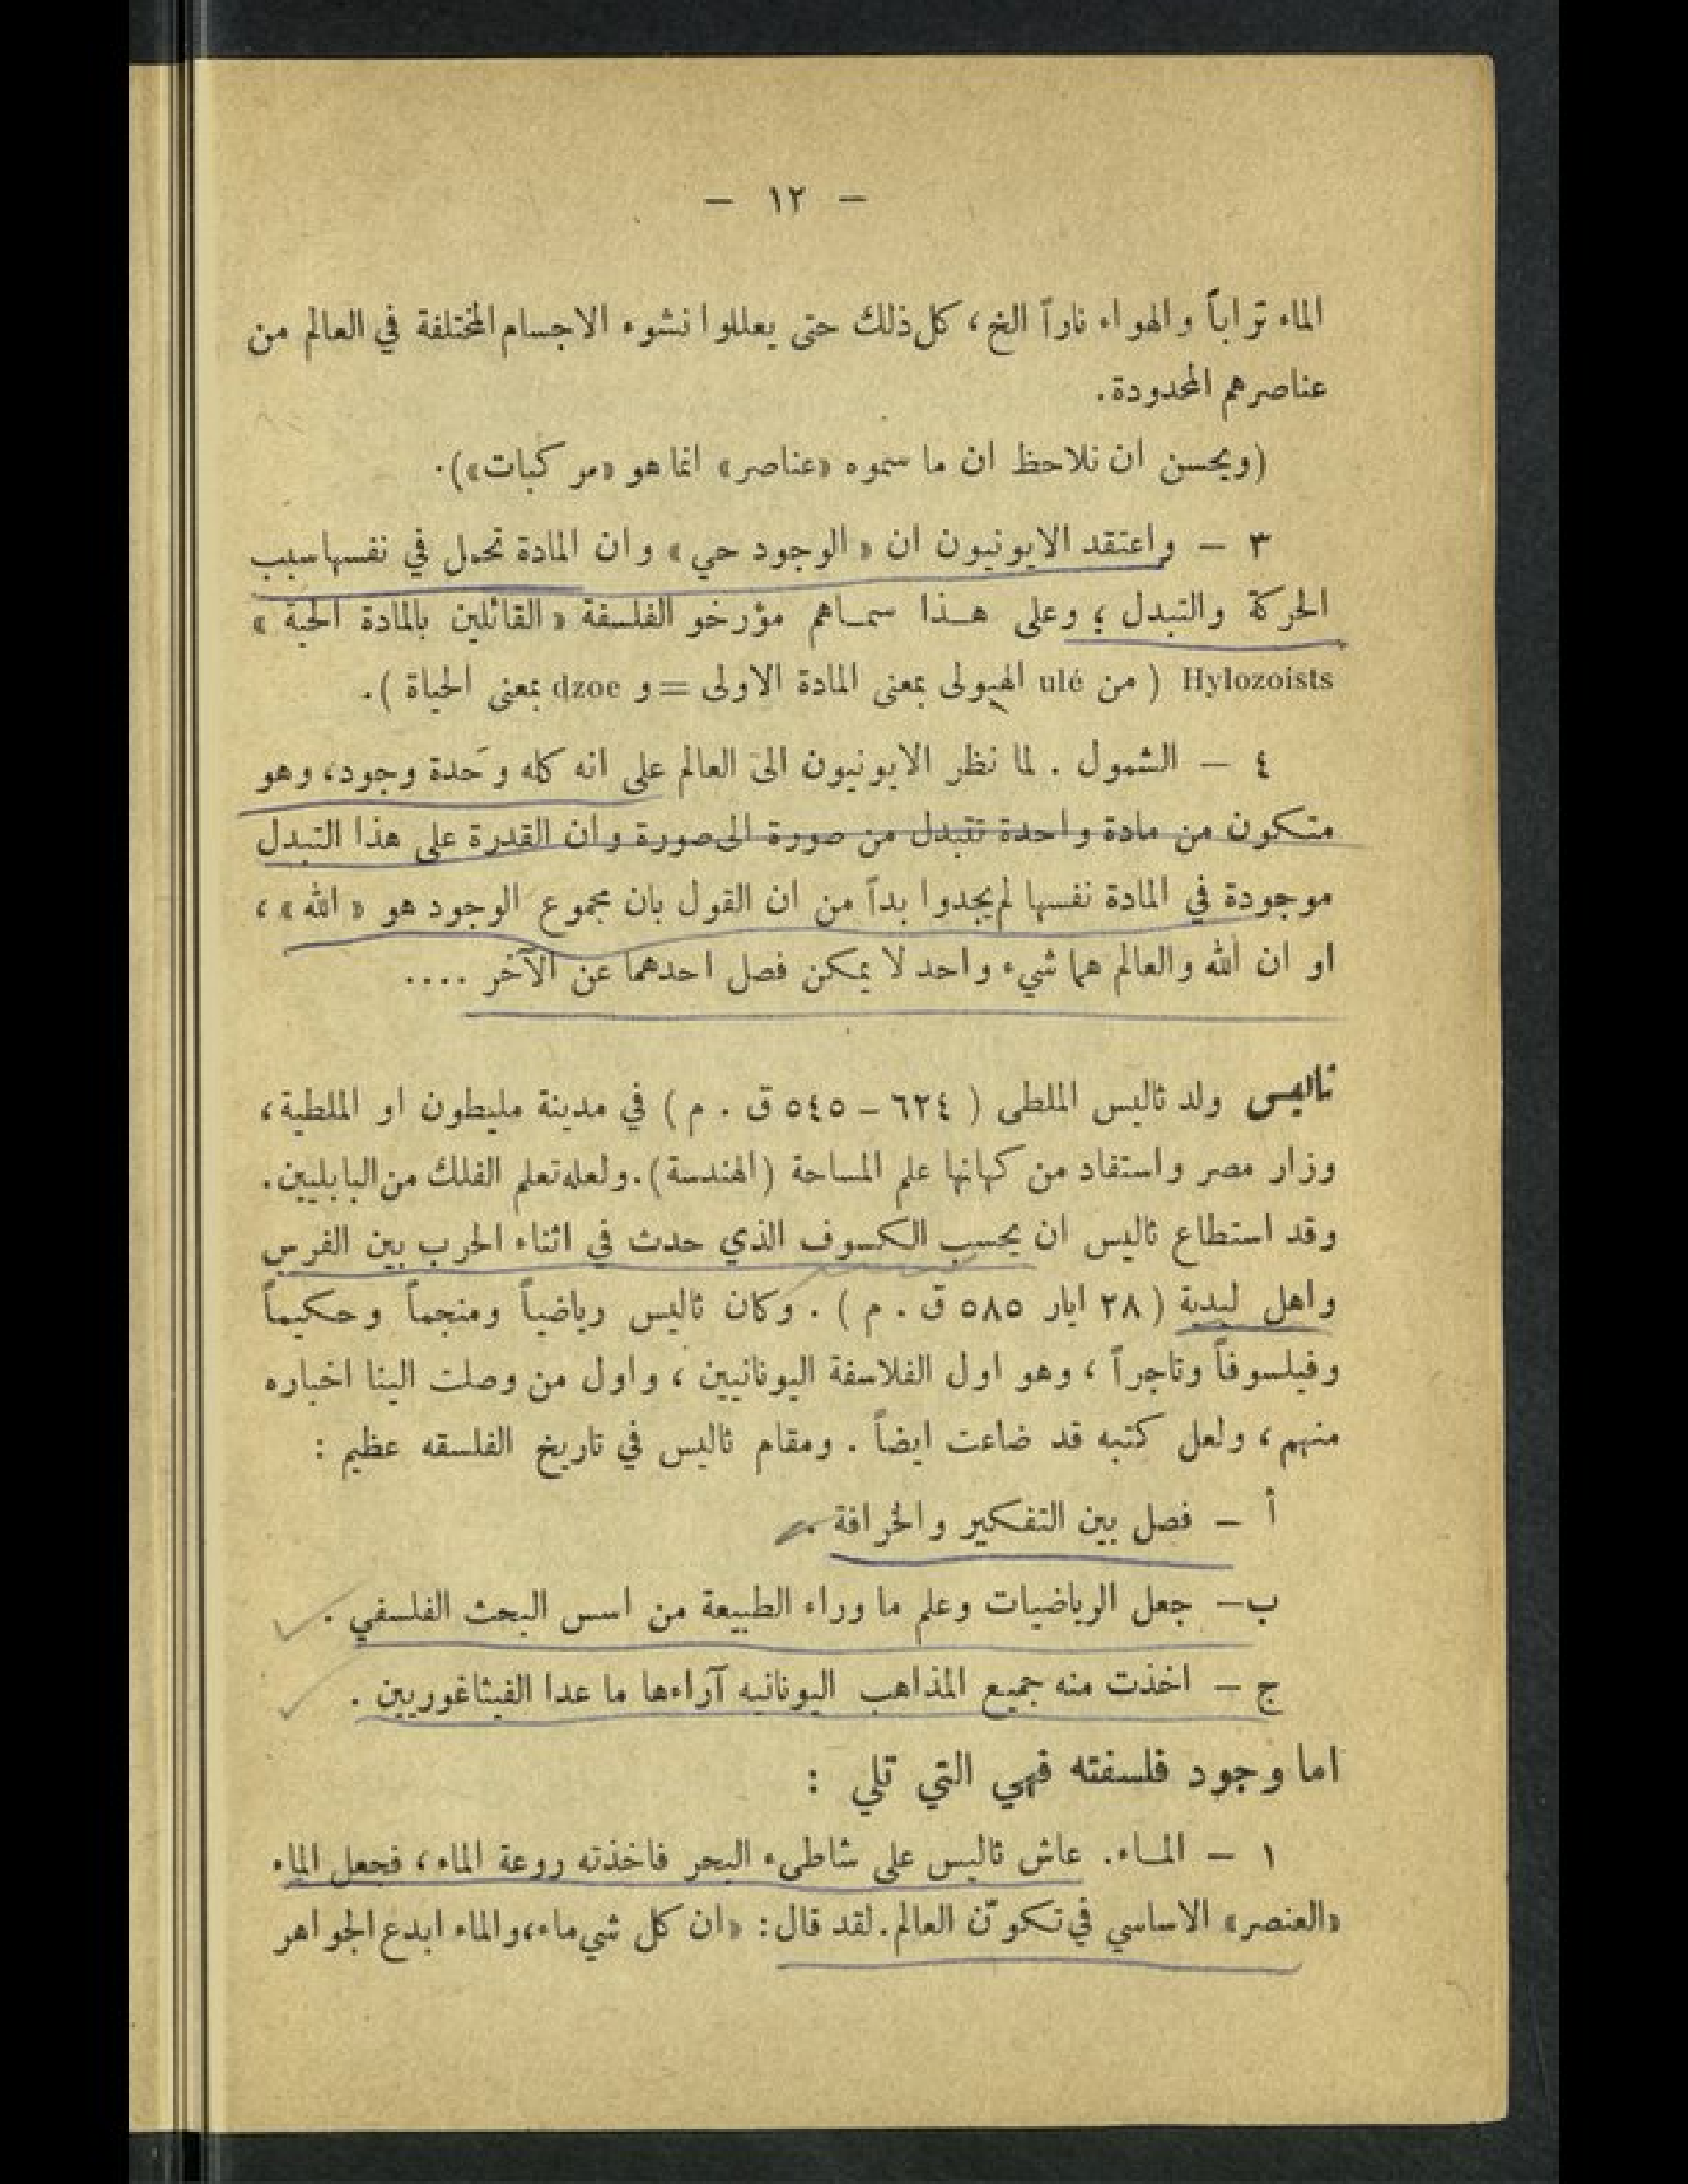 — ١٢ —
الماء تراباً والهواء ناراً الخ، كل ذلك حتى يعللوا نشوء الاجسام المختلفة في العالم من
عناصرهم المحدودة.
(ويحسن ان نلاحظ ان ما سموه «عناصر» انما هو «مركبات»).
٣ — واعتقد الايونيون ان « الوجود حي » وان المادة تحمل في نفسها سبب
الحركة والتبدل ؛ وعلى هـذا سمـاهم مؤرخو الفلسفة « القائلين بالمادة الحية »
Hylozoists ( من ulé الهيولى بمعنى المادة الاولى = و dzoe بمعنى الحياة ).
٤ — الشمول . لما نظر الايونيون الى العالم على انه كله وَحدة وجود، وهو
متكون من مادة واحدة تتبدل من صورة الى صورة وان القدرة على هذا التبدل
موجودة في المادة نفسها لم يجدوا بداً من ان القول بان مجموع الوجود هو « الله »،
او ان الله والعالم هما شيء واحد لا يمكن فصل احدهما عن الآخر ....
ثاليس ولد ثاليس الملطى ( ٦٢٤ – ٥٤٥ ق . م ) في مدينة مليطون او الملطية،
وزار مصر واستفاد من كهانها علم المساحة (الهندسة). ولعله تعلم الفلك من البابليين.
وقد استطاع ثاليس ان يحسب الكسوف الذي حدث في اثناء الحرب بين الفرس
واهل ليدية ( ٢٨ ايار ٥٨٥ ق . م ) . وكان ثاليس رياضياً ومنجماً وحكيماً
وفيلسوفاً وتاجراً ، وهو اول الفلاسفة اليونانيين ، واول من وصلت الينا اخباره
منهم ، ولعل كتبه قد ضاعت ايضاً . ومقام ثاليس في تاريخ الفلسقه عظيم :
أ — فصل بين التفكير والخرافة .
ب— جعل الرياضيات وعلم ما وراء الطبيعة من اسس البحث الفلسفي .
ج — اخذت منه جميع المذاهب اليونانيه آراءها ما عدا الفيثاغوريين .
اما وجود فلسفته فهي التي تلي :
١ — المـاء. عاش ثاليس على شاطىء البحر فاخذته روعة الماء ، فجعل الماء
«العنصر» الاساسي في تكوّن العالم. لقد قال : «ان كل شي ماء، والماء ابدع الجواهر